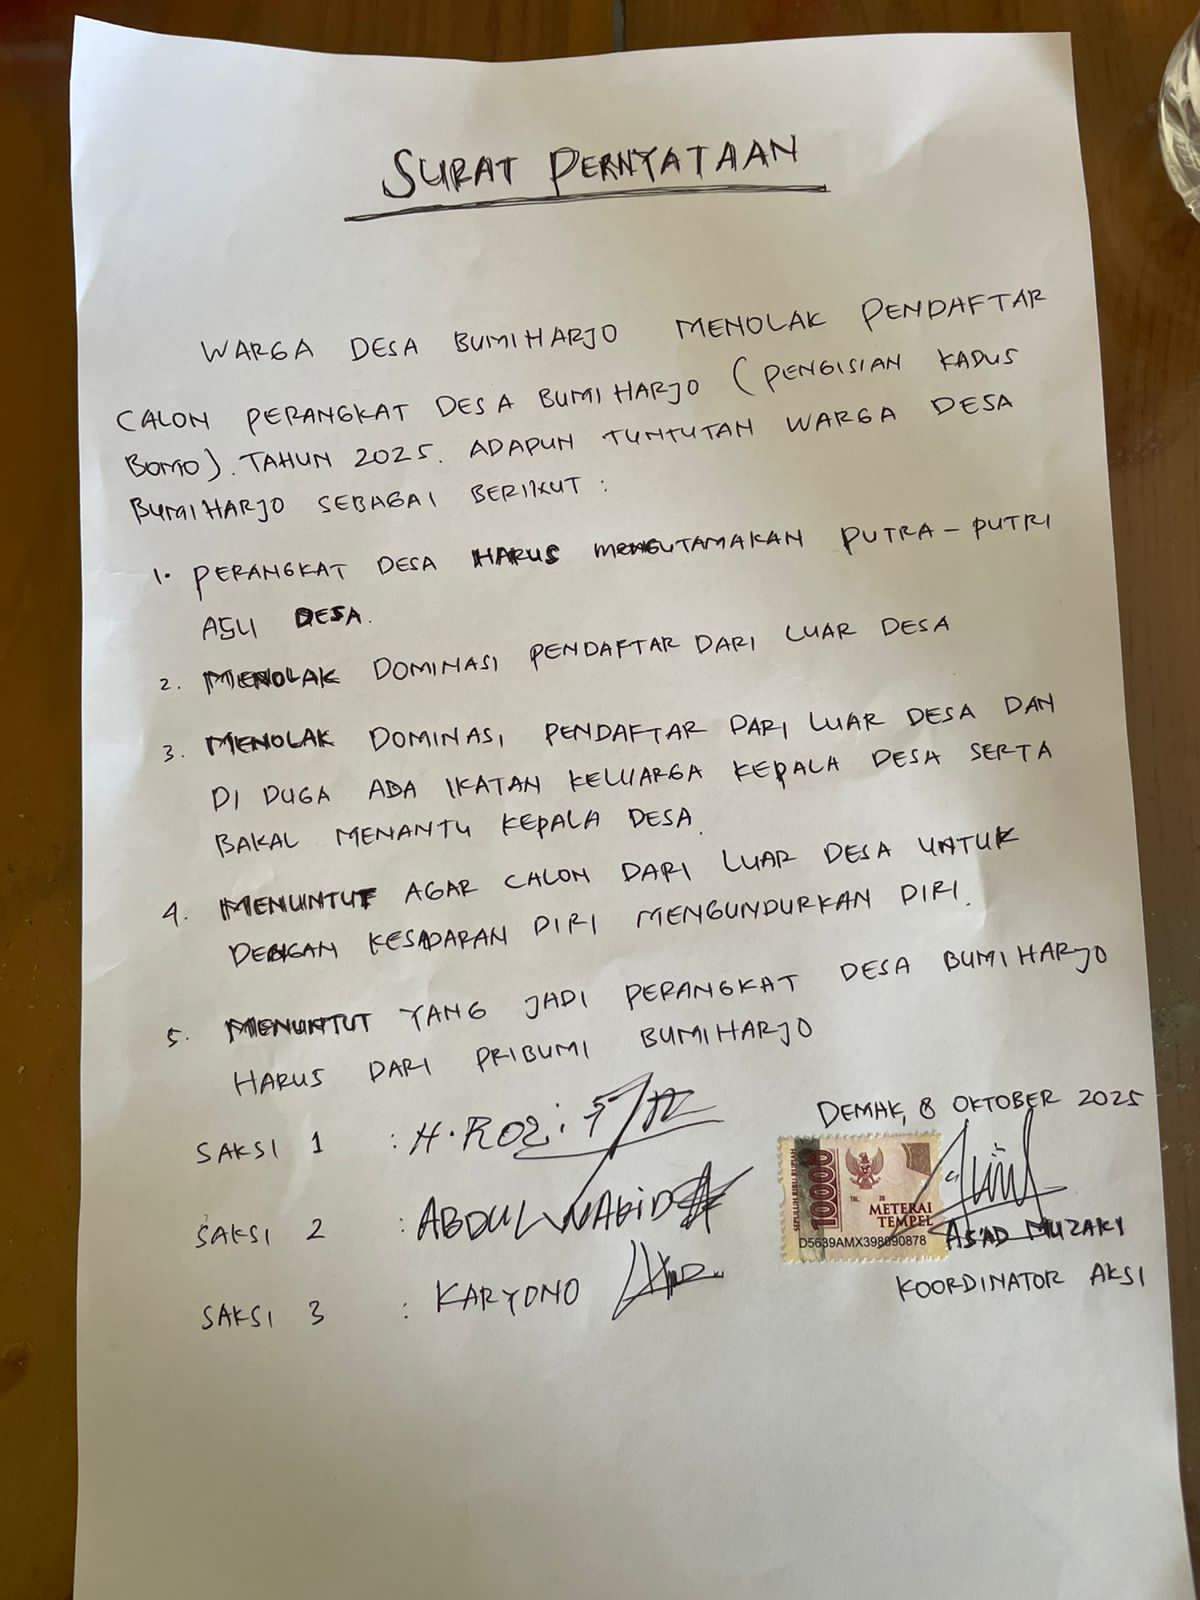 SURAT PERNYATAAN
WARGA DESA BUMIHARJO MENOLAK PENDAFTAR
CALON PERANGKAT DESA BUMIHARJO (PENGISIAN KADUS
BOMO). TAHUN 2025. ADAPUN TUNTUTAN WARGA DESA
BUMIHARJO SEBAGAI BERIKUT :
1. PERANGKAT DESA HARUS MENGUTAMAKAN PUTRA-PUTRI
ASLI DESA.
2. MENOLAK DOMINASI PENDAFTAR DARI LUAR DESA
3. MENOLAK DOMINASI PENDAFTAR DARI LUAR DESA DAN
DI DUGA ADA IKATAN KELUARGA KEPALA DESA SERTA
BAKAL MENANTU KEPALA DESA.
4. MENUNTUT AGAR CALON DARI LUAR DESA UNTUK
DENGAN KESADARAN DIRI MENGUNDURKAN DIRI.
5. MENUNTUT YANG JADI PERANGKAT DESA BUMIHARJO
HARUS DARI PRIBUMI BUMIHARJO
DEMAK, 8 OKTOBER 2025
SAKSI 1 : H. ROZI
SAKSI 2 : ABDUL WAHID
SAKSI 3 : KARYONO
SEPULUH RIBU RUPIAH
10000
TGL. 20
METERAI
TEMPEL
D5639AMX398090878
AS'AD MUZAKI
KOORDINATOR AKSI